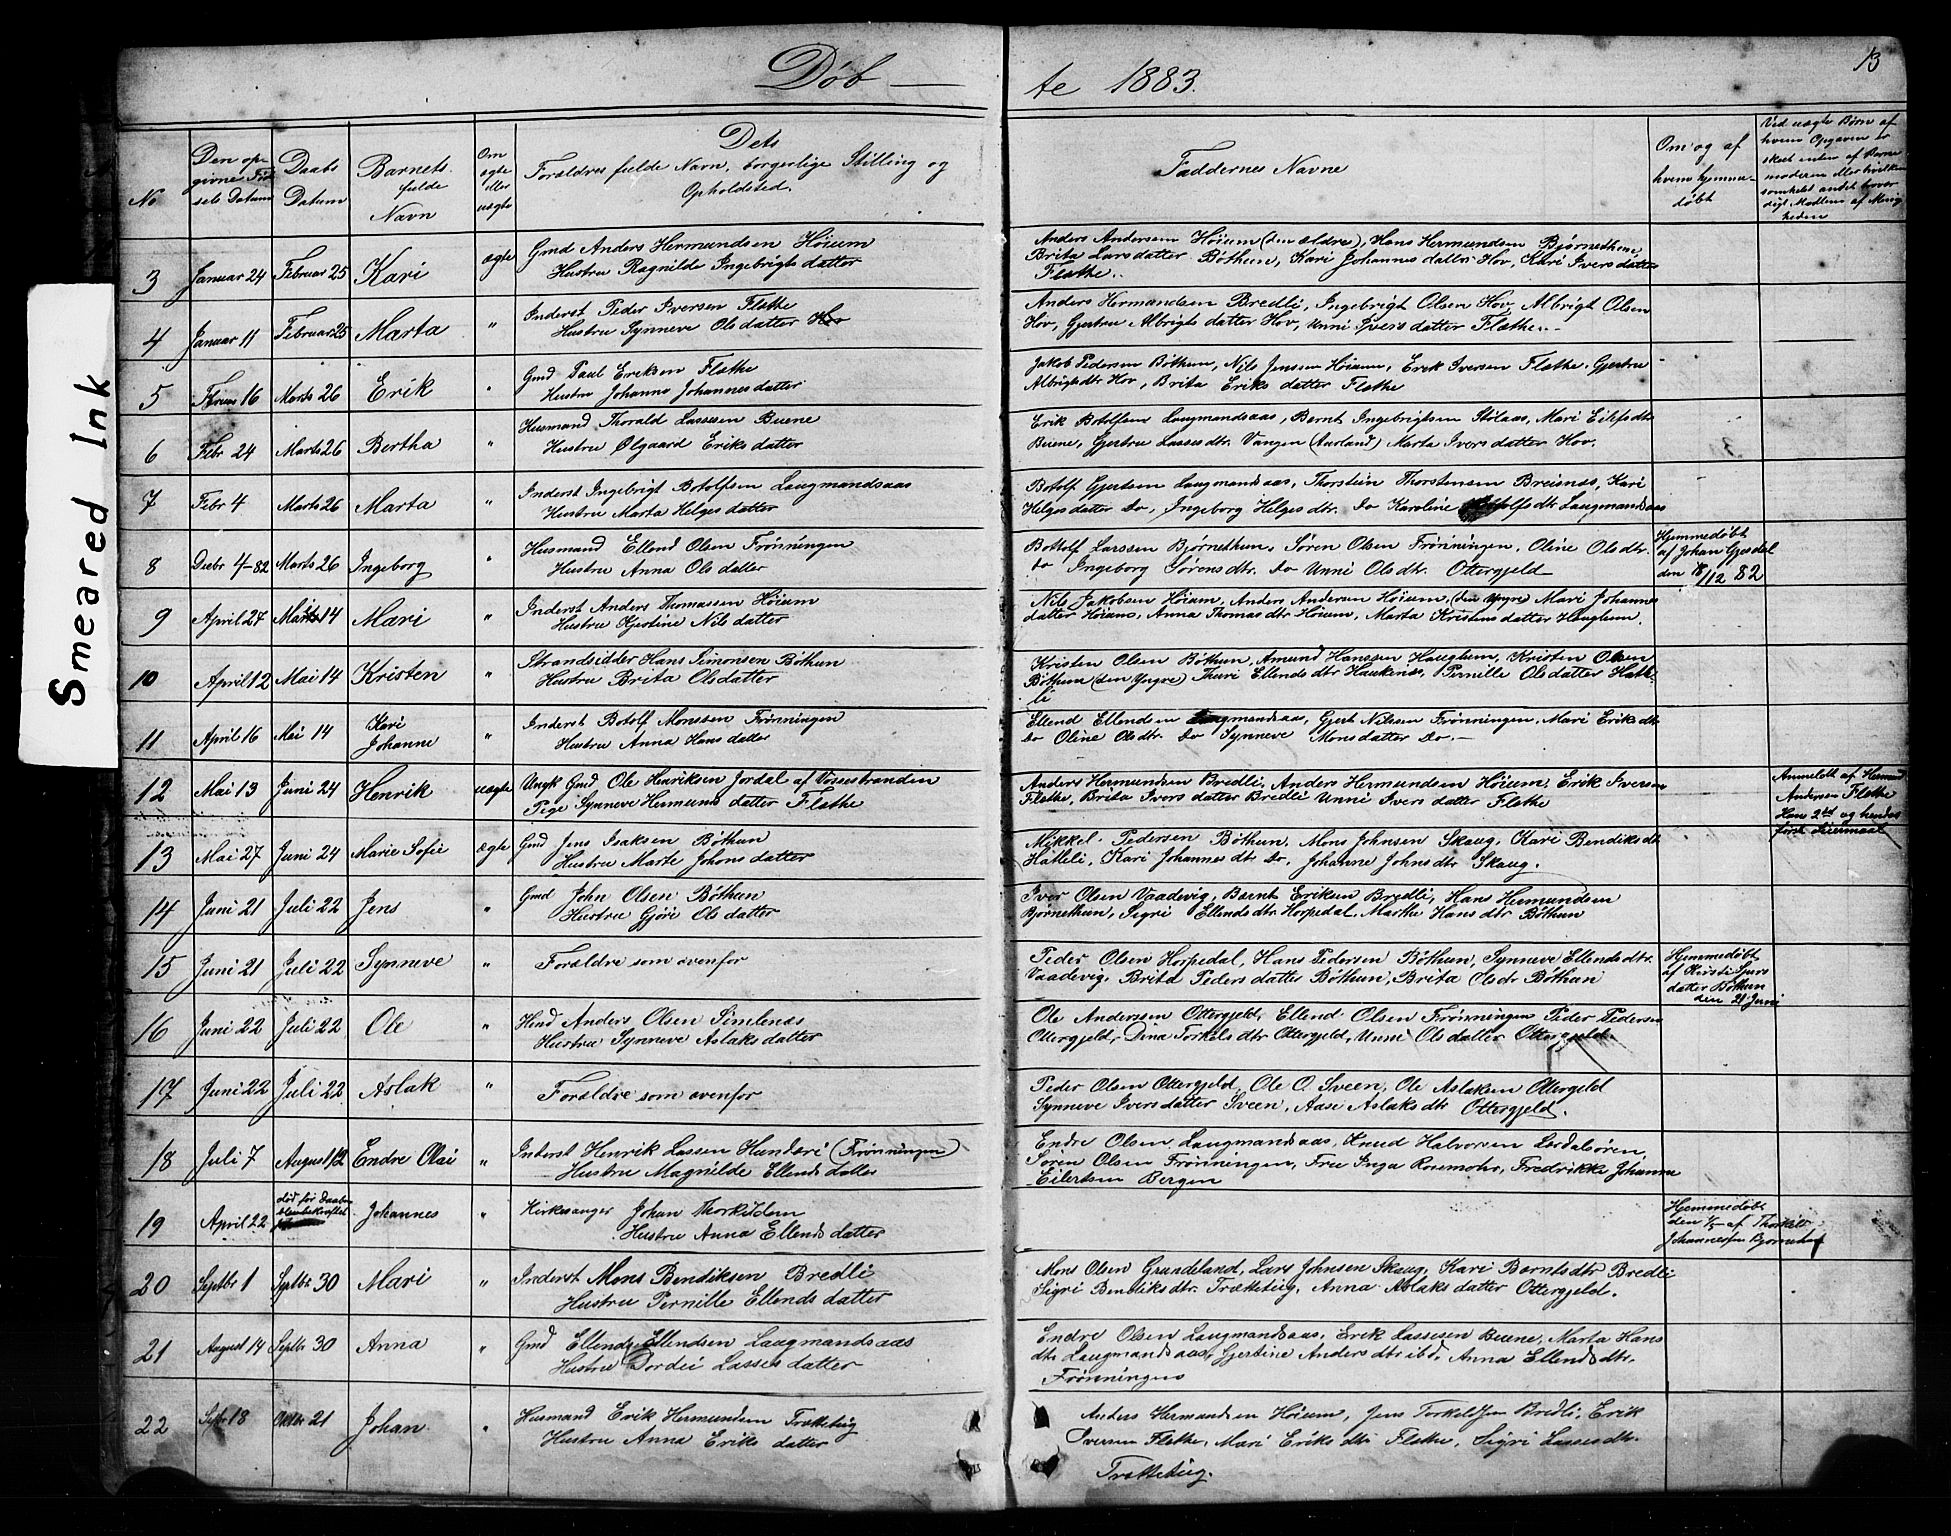 Smeared Ink
Døb — te 1883.
13
No
Den op-
givne Fød
sels Datum
Daabs
Datum
Barnets
fulde
Navn
Om
ægte
eller
uægte
Dets
Forældres fulde Navn, borgerlige Stilling og
Opholdsted.
Faddernes Navne
Om og af
hvem hjemme-
døbt
Ved uægte Børn af
hvem Opgaven er
skeet enten af Barne
moderen eller hvilken
somhelst anden
heden
3 Januar 24 Februar 25 Kari ægte Gmd Anders Hermundsen Höium
Hustru Ragnilde Ingebrigts datter
Anders Andersen Höium (den ældre), Hans Hermundsen Bjørnethun,
Brita Larsdatter Böthun, Kari Johannes datter Hov, Kari Ivers datter
Flathe.
4 Januar 11 Februar 25 Marta " Inderst Peder Iversen Flathe
Hustru Synneve Olsdatter Hov
Anders Hermandsen Bredli, Ingebrigt Olsen Hov, Albrigt Olsen
Hov, Gjertru Albrigts datter Hov, Unni Ivers datter Flathe.
5 16 Marts 26 Erik " Gmd Paul Eriksen Flathe
Hustru Johanna Johannesdatter
Jakob Pedersen Böthun, Nils Jenssen Höium, Erik Iversen Flathe, Gjertru
Albrigtsdtr Hov, Brita Eriks datter Flathe
6 Febr 24 Marts 26 Bertha " Husmand Thorald Lassesen Buene
Hustru Olgaard Eriks datter
Erik Botolfsen Laugmandsaas, Bernt Ingebrigtsen Stölaas, Mari Eilifsdtr
Buene, Gjertru Lassesdtr. Vangen (Aurland) Marta Ivers datter Hov.
7 Febr 4 Marts 26 Marta " Inderst Ingebrigt Botolfsen Laugmandsaas
Hustru Marta Helges datter
Botolf Gjertsen Laugmandsaas, Thorstein Thorstensen Breisnæs, Kari
Helges datter Do, Ingeborg Helges dtr. Do Karoline Botolfs dtr Laugmandsaas
8 Decbr 4-82 Marts 26 Ingeborg " Husmand Ellend Olsen Frönningen
Hustru Anna Ols datter
Bottolf Larssen Bjørnethun, Sören Olsen Frönningen, Oline Ols dtr.
Do Ingeborg Sörens dtr. Do Unni Ols dtr. Ottergjeld
Hjemmedøbt
af Johan Gjesdal
den 18/12 82
9 April 27 Mai 14 Mari " Inderst Anders Thomassen Höium
Hustru Gjertine Nils datter
Nils Jakobsen Höium, Anders Andersen Höium, (den Yngre) Mari Johannes
datter Höium, Anna Thomas dtr Höium, Marta Kristens datter Haughum.
10 April 12 Mai 14 Kristen " Strandsidder Hans Simonsen Böthun
Hustru Brita Olsdatter
Kristen Olsen Böthun, Amund Hanssen Haughum, Kristen Olsen
Böthun (den Yngre) Thuri Ellends dtr Haukenæs, Pernille Ols datter Hatle-
li
11 April 16 Mai 14 Kari
Johanne " Inderst Botolf Monssen Frönningen
Hustru Anna Hans datter
Ellend Ellendsen Laugmandsaas, Gjert Nilssen Frönningen, Mari Eriks dtr
Do Oline Ols dtr. Do Synneve Mons datter Do. -
12 Mai 13 Juni 24 Henrik uægte Ungk Gmd Ole Henriksen Jordal af Vossestranden
Pige Synneve Hermunds datter Flathe
Anders Hermundsen Bredli, Anders Hermundsen Höium, Erik Iversen
Flathe, Brita Ivers datter Bredli Unni Ivers datter Flathe
Anmeldt af Hermund
Andersen Flathe
Hans 2det og hendes
første Leiermaal
13 Mai 27 Juni 24 Marie Sofie ægte Gmd Jens Isaksen Böthun
Hustru Marte Johans datter
Mikkel Pedersen Böthun, Mons Johnsen Skaug, Kari Bendiks dtr
Hatleli, Kari Johannes dtr Do, Johanne Johns dtr Skaug.
14 Juni 21 Juli 22 Jens " Gmd John Olsen Böthun
Hustru Gjöri Ols datter
Iver Olsen Vaadvig, Bernt Eriksen Bredli, Hans Hermundsen
Bjørnethun, Sigri Ellends dtr Horpedal, Marthe Hans dtr Böthun
15 Juni 21 Juli 22 Synneve " Forældre som ovenfor
Peder Olsen Horpedal, Hans Pedersen Böthun, Synneve Ellends dtr.
Vaadevig, Brita Peders datter Böthun, Brita Olsdr Böthun
Hjemmedøbt
af Kirsti
datter Böthun
den 21 Juni
16 Juni 22 Juli 22 Ole " Hmd Anders Olsen Simlenæs
Hustru Synneve Aslaks datter
Ole Anderssen Ottergjeld, Ellend Olsen Frönningen Peder Pedersen
Ottergjeld, Dina Torkels dtr Ottergjeld, Unni Ols datter Ottergjeld
17 Juni 22 Juli 22 Aslak " Forældre som ovenfor
Peder Olsen Ottergjeld, Ole O. Sveen, Ole Aslaksen Ottergjeld
Synneve Ivers datter Sveen, Aase Aslaks dtr Ottergjeld.
18 Juli 7 August 12 Endre Olai " Inderst Henrik Lassen Hunderi (Frönningen)
Hustru Magnilde Ellends datter
Endre Olsen Laugmandsaas, Knud Halvorsen Lærdalsören,
Sören Olsen Frönningen, Fru Inga Rosenmohr, Fredrikke Johanna
Eilertsen Bergen
19 April 22 død før Daaben
blev bekræftet Johannes " Kirkesanger Johan Thorkildsen
Hustru Anna Ellends datter
Hjemmedøbt
den 1/5 af Thorkild
Johannessen Bjørnethun
20 Septbr 1 Septbr 30 Mari " Inderst Mons Bendiksen Bredli
Hustru Pernille Ellends datter
Mons Olsen Grundeland, Lars Johnsen Skaug, Kari Bernts dtr Bredli
Sigri Bendiks dtr. Trætteteig, Anna Aslaks datter Ottergjeld.
21 August 14 Septbr 30 Anna " Gmd Ellend Ellendsen Laugmandsaas
Hustru Lasses datter
Endre Olsen Laugmandsaas, Erik Lassesen Buene, Marta Hans
dtr Laugmandsaas, Gjertine Anders dtr ibd, Anna Ellends dtr.
Frönningen
22 Septbr 18 Oktbr 21 Johan " Husmand Erik Hermundsen Trætteteig
Hustru Anna Eriks datter
Anders Hermandsen Höium, Jens Torkelsen Bredli, Erik
Iversen Flathe, Mari Eriks dtr Flathe, Sigri Lasses dtr.
Trætteteig.